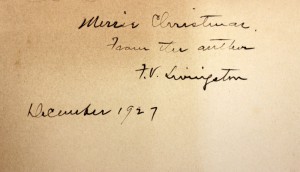 Merrie Christmas.
From the author
F. V. Livingston
December 1927